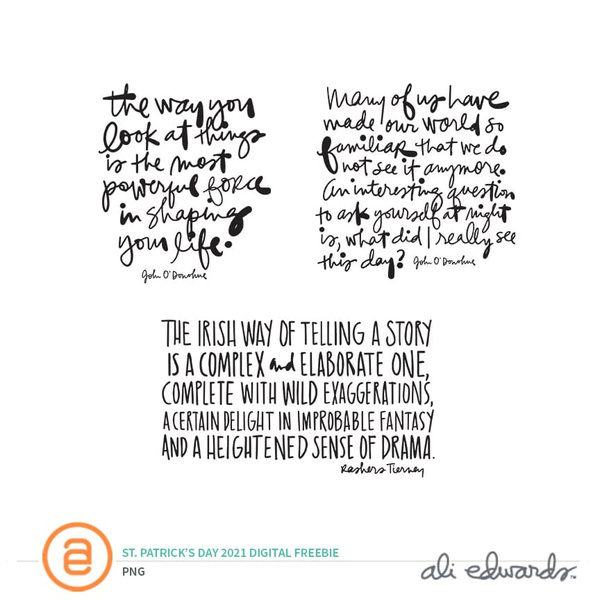 the way you
look at things
is the most
powerful force
in shaping
your life.
John O'Donohue
Many of us have
made our world so
familiar that we do
not see it anymore.
An interesting question
to ask yourself at night
is, what did I really see
this day? John O'Donohue
THE IRISH WAY OF TELLING A STORY
IS A COMPLEX and ELABORATE ONE,
COMPLETE WITH WILD EXAGGERATIONS,
A CERTAIN DELIGHT IN IMPROBABLE FANTASY
AND A HEIGHTENED SENSE OF DRAMA.
Rashers Tierney
ae
ST. PATRICK'S DAY 2021 DIGITAL FREEBIE
PNG
ali edwards™